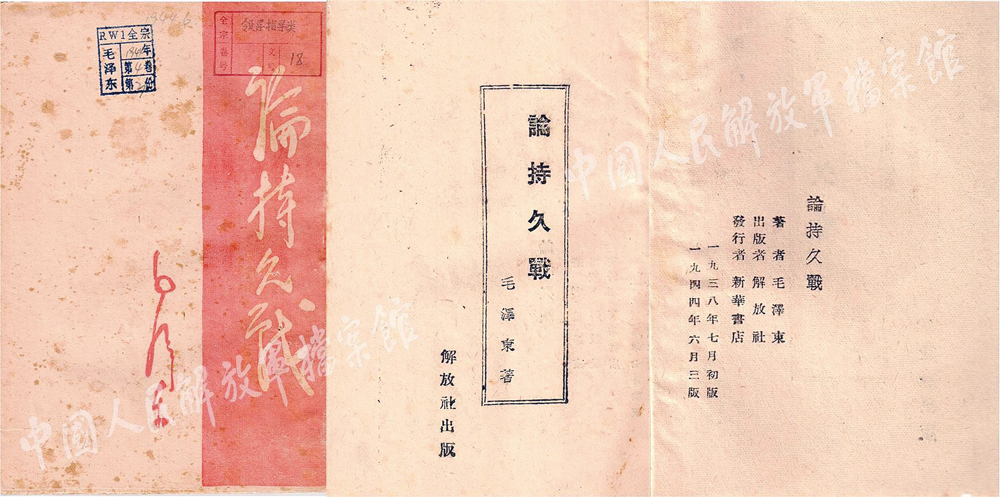 RW1全宗
毛泽东
年
第4卷
第 份
全宗卷号
18
論持久戰
毛泽东
中國人民解放軍檔案館
論持久戰
毛澤東著
解放社出版
論持久戰
著者 毛澤東
出版者 解放社
發行者 新華書店
一九三八年七月初版
一九四四年六月三版
中國人民解放軍檔案館